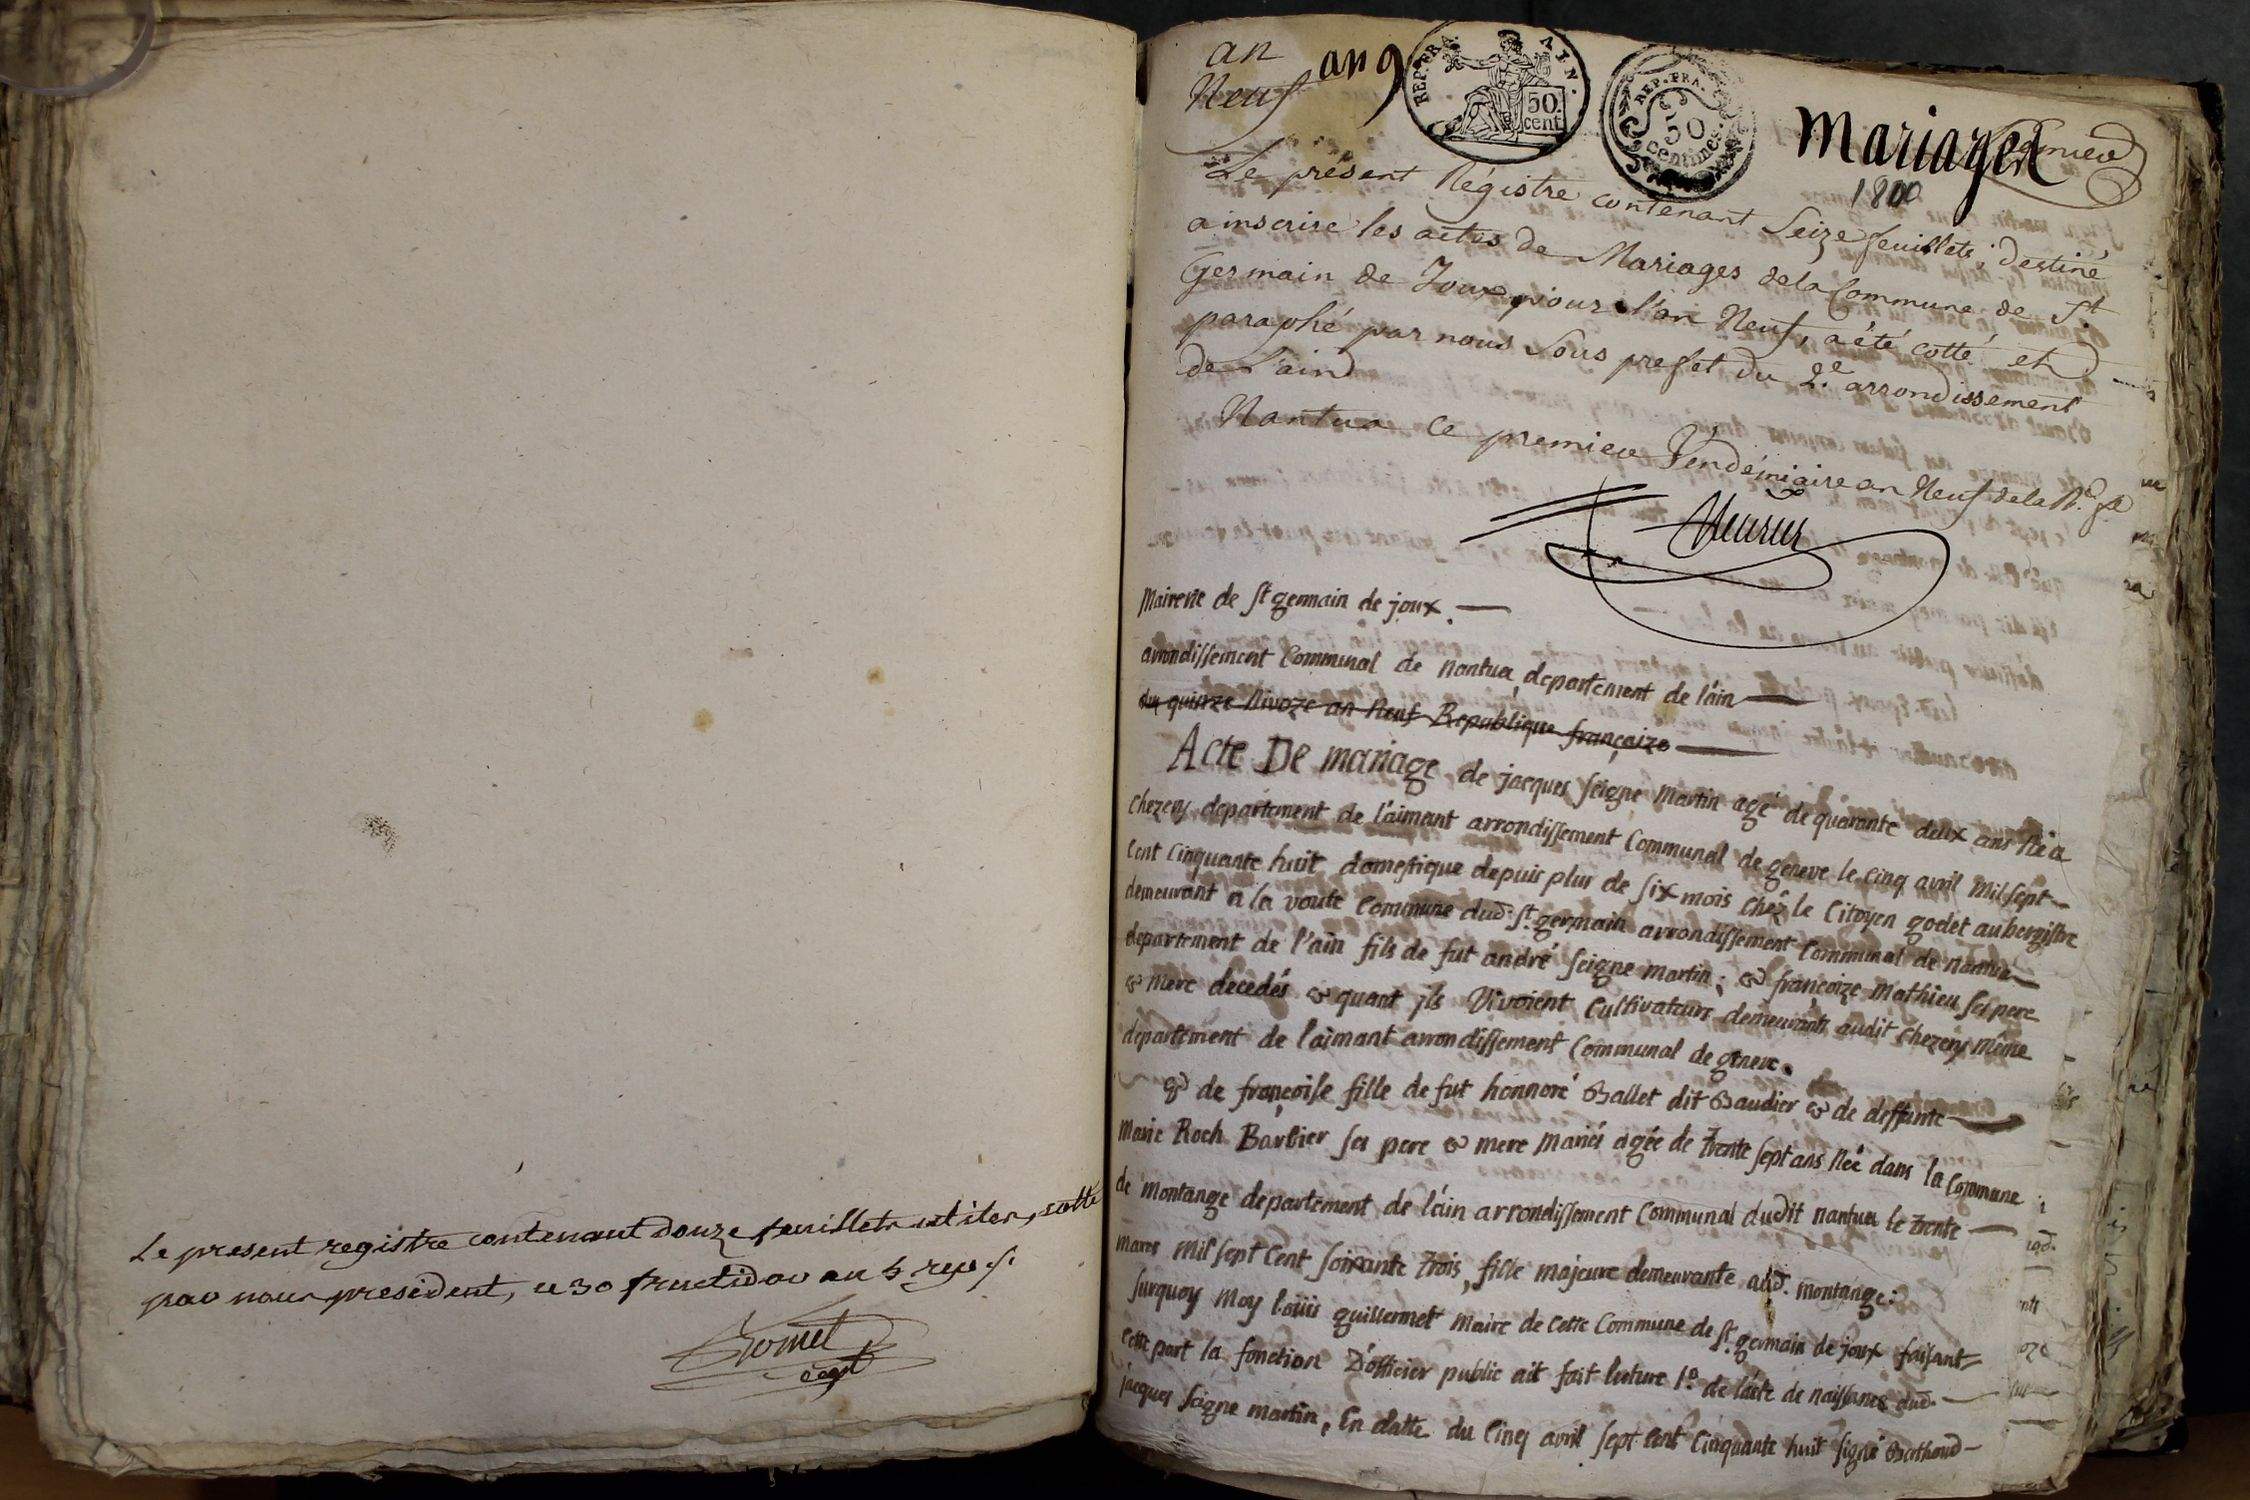 Le present registre contenant douze feuillets utiles, cotté
par nous president, ce 30 fructidor an 5. rep. f.
an
Neuf
an 9
REP. FRA. AIN.
50
cent.
REP. FRA.
50
centimes.
Mariages
premier
1800
Le présent Régistre contenant Seize feuillets, destiné
a inscrire les actes de Mariages de la Commune de St.
Germain de Joux pour l'an Neuf, a été cotté et
paraphé par nous Sous prefet du 2.e arrondissement
de L'ain
Nantua ce premier Vendémiaire an Neuf de la R.
Mairerie de st germain de joux.
arrondissement Communal de nantua, departement de lain
du quinze Nivoze an neuf Republique françaize
Acte De mariage de jacques seigne martin agé de quarante deux ans né a
Chezery departement de l'aimant arrondissement Communal de geneve le cinq avril mil sept
Cent Cinquante huit domestique depuis plus de six mois chéz le Citoyen godet aubergistre
demeurant a la voute Commune dud. st. germain arrondissement Communal de nantua
departement de l'ain fils de fut andré seigne martin; & françoize mathieu ses pere
& mere decedés & quant ils Vivoient Cultivateurs demeurants audit Chezery même
departement de l'aimant arrondissement Communal de geneve.
& de françoise fille de fut honnoré Ballet dit Baudier & de deffunte
Marie Roch Barbier ses pere & mere mariés agée de trente sept ans née dans la Commune
de montange departement de l'ain arrondissement Communal dudit nantua le trente
mars mil sept Cent soixante trois, fille majeure demeurante aud. montange:
surquoy moy loüis guillermet maire de cette Commune de st. germain de joux faisant
cette part la fonction D'officier public ait fait lecture 1.o de l'acte de naissance dud.
jacques seigne martin, En datte du Cinq avril sept Cent Cinquante huit signé Berthoud